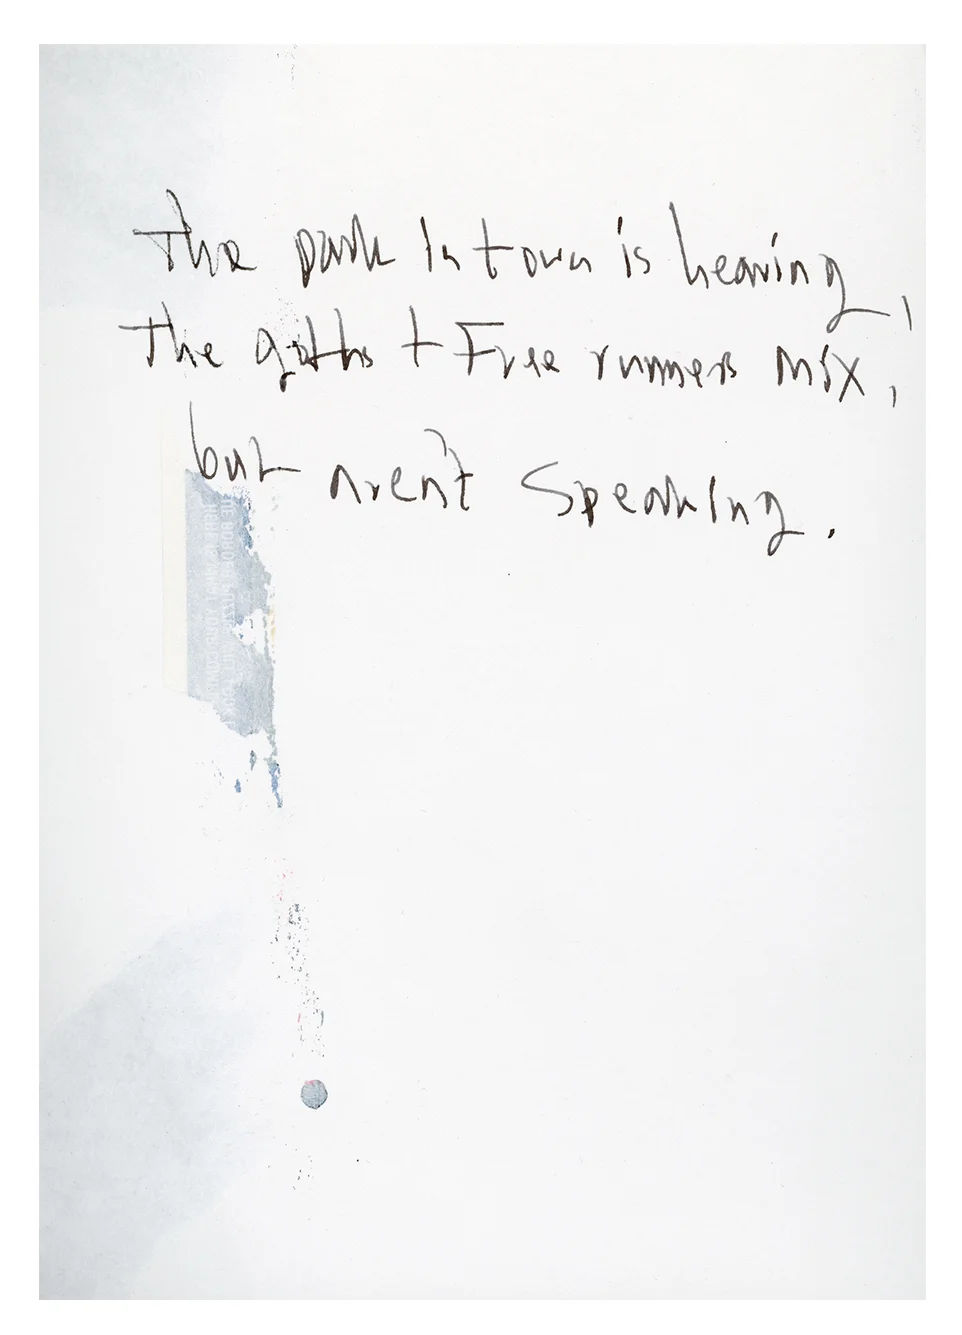 The park in town is heaving,
The goths + Free runners mix,
but aren't Speaking.